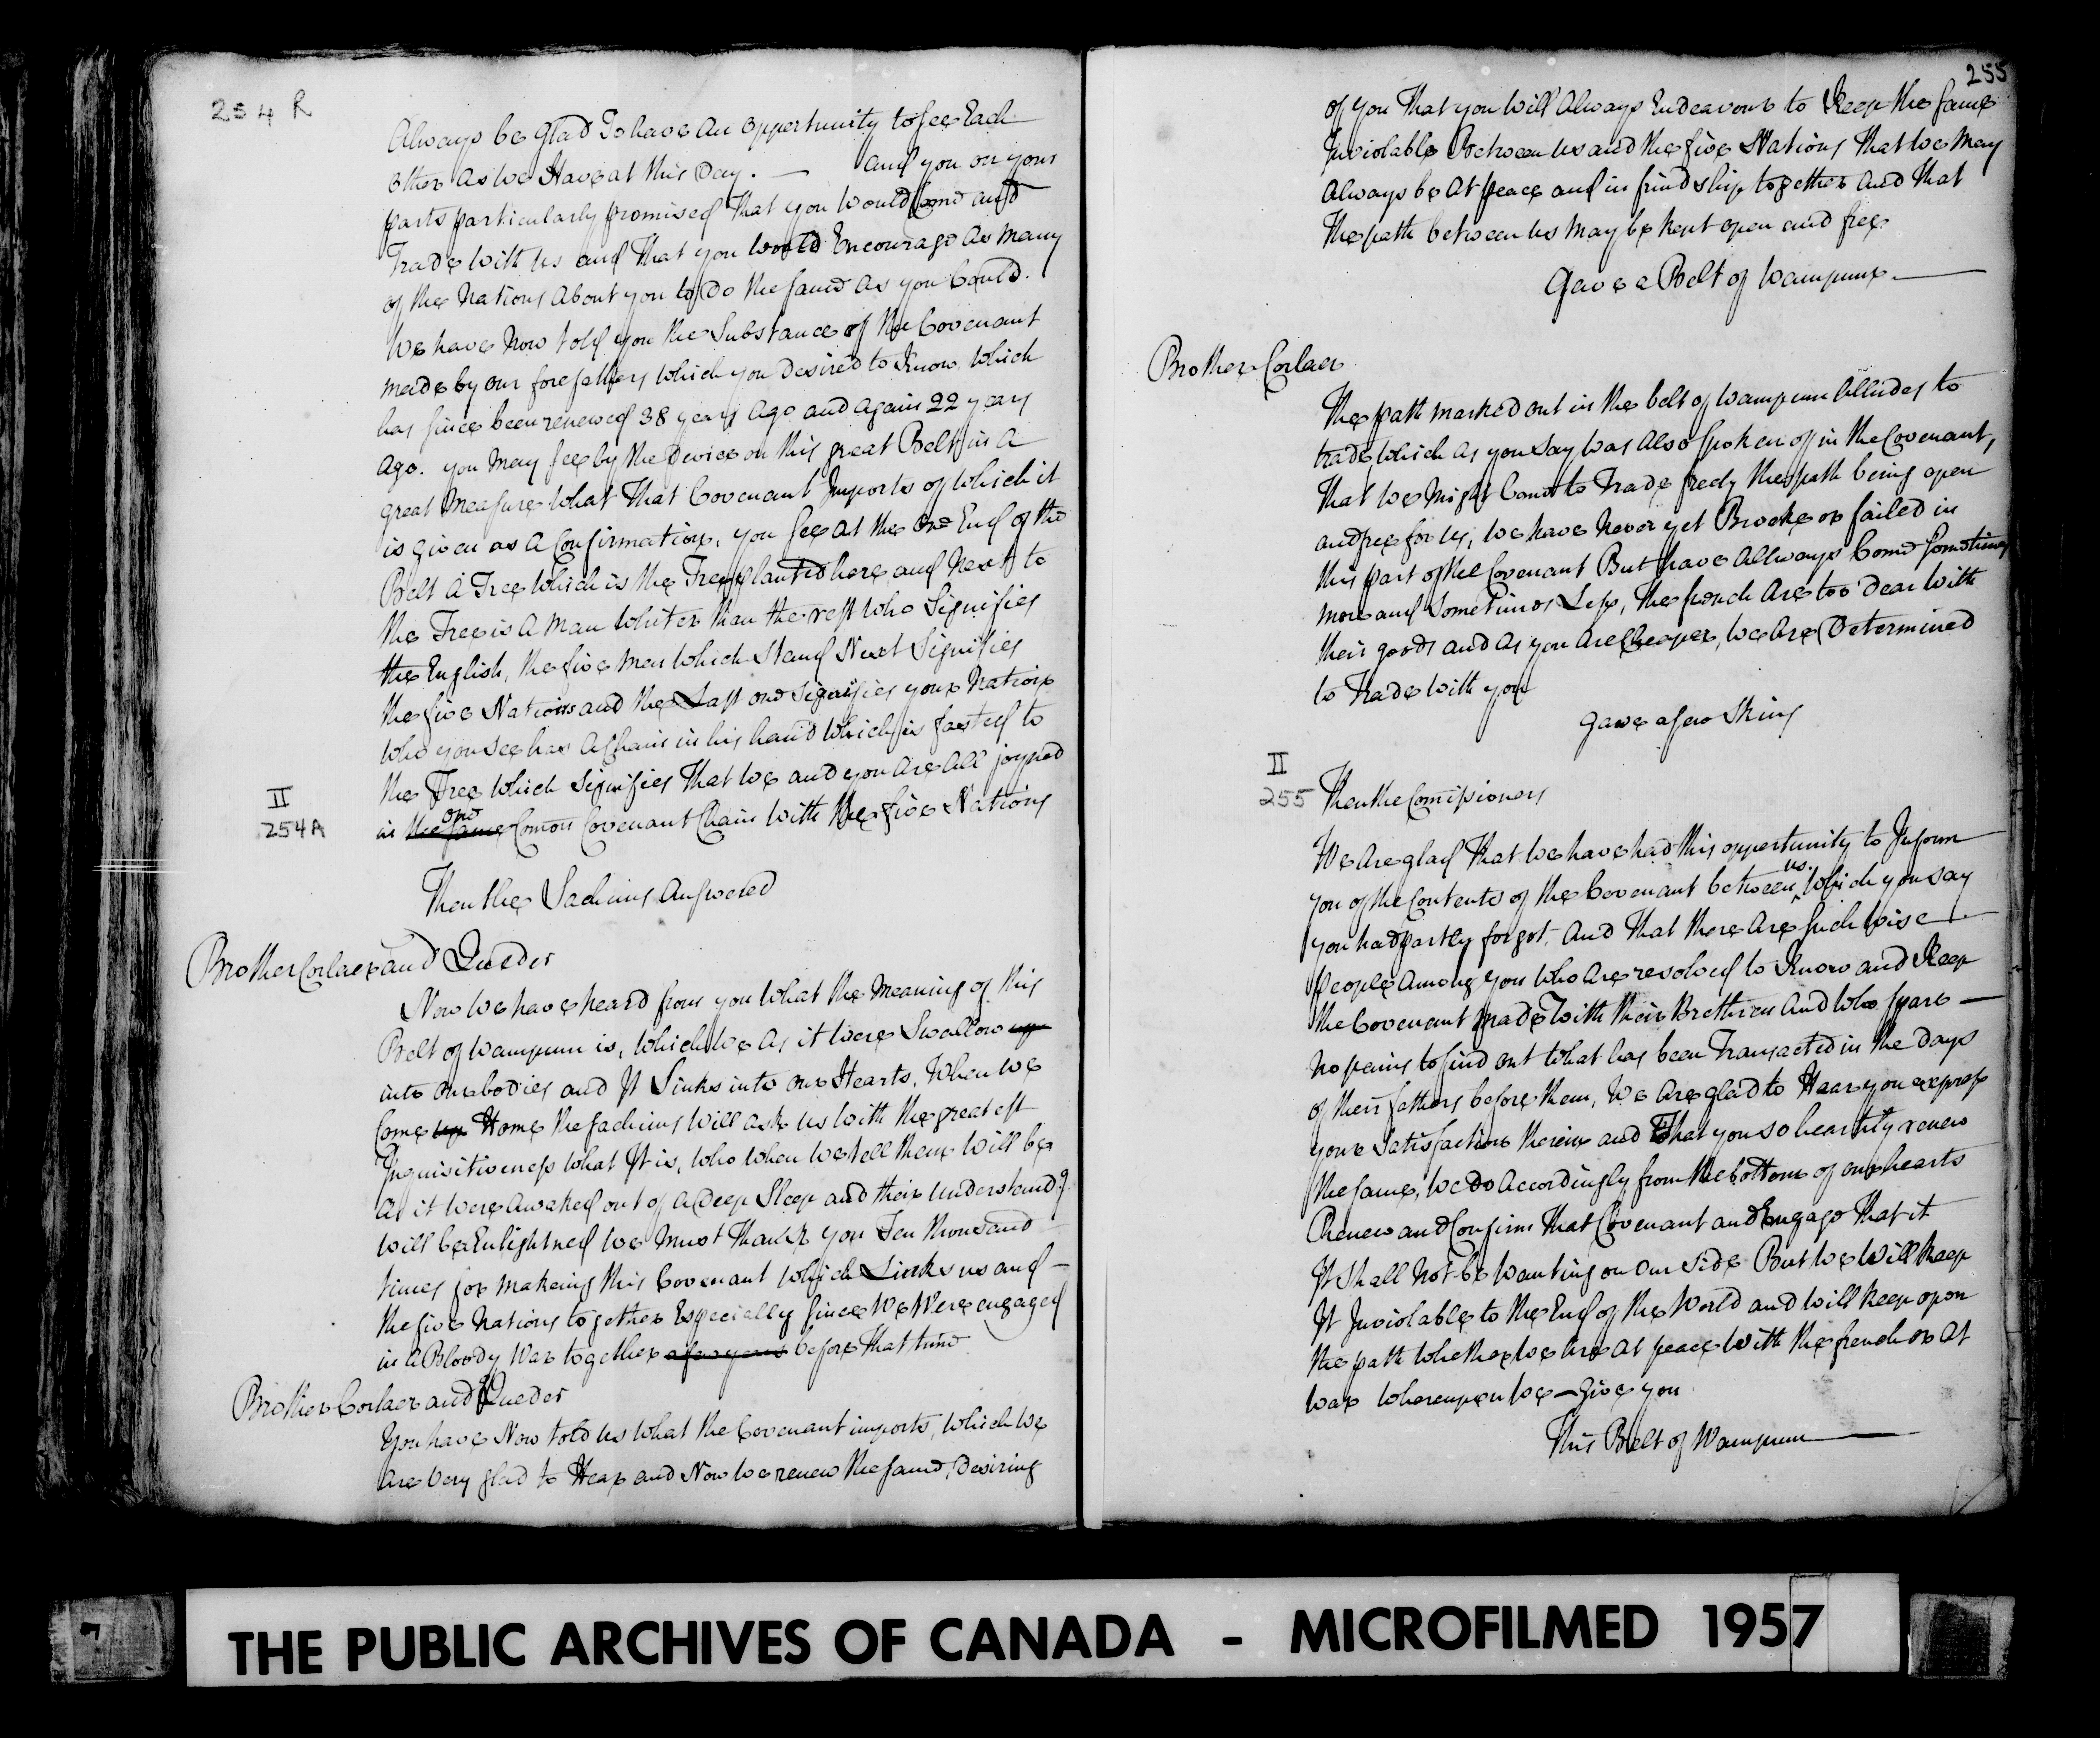 254 R
Always be glad To have an oppertunity to see Each
other as we Have at this Day. — and you on your
parts particularly promised That you would Come and
Trade with us and That you would Encourage as many
of the Nations about you to Do the same as you Could.
We have Now told you the Substance of the Covenant
made by our forefathers which you desired to Know, which
has since been renewed 38 years ago and again 22 years
ago. you may see by the Device on this great Belt in a
great measure what That Covenant Imports of which it
is given as a Confirmation, you see at the one End of the
Belt a Tree which is the Tree planted here and Next to
the Tree is a man whiter than the rest who Signifies
the English, the five men which Stand Next Signifies
the five Nations and the Last one signifies your Nation
who you see has a Chain in his hand which is fasted to
the Tree which signifies That we and you are all joyned
II
254A
in the same one Comon Covenant Chain with the five Nations
Then the Sachims Answered
Brother Corlaer and Queder
Now we have heard from you what the Meaning of this
Belt of wampum is, which we as it were Swallow up
into our bodies and It Sinks into our Hearts. When we
Come up Home the sachims will ask us with the greatest
Inquisitiveness what It is, who when we tell them will be
as it were awaked out of a Deep Sleep and their understandg.
will be Enlightned we must Thank you Ten thousand
times for making this Covenant which Links us and —
the five Nations together Especially since we Were engaged
in a Bloody War together a few years before That time
Brother Corlaer and Queder
You have Now told us what the Covenant imports, which we
are very glad to Hear and Now we renew the same, desiring
255
of you That you will Always Endeavour to Keep the same
Inviolable Between us and the five Nations That we May
Always be At peace and in frindship together and That
The path between us may be kept open and free.
Gave a Belt of Wampum —
Brother Corlaer
The path marked out in the belt of wampum Alludes to
trade which as you say was also spoken of in the Covenant,
That we might Come to Trade freely the path being open
and free for us, we have Never yet Brooke or failed in
this part of the Covenant But have Allways Come sometimes
more and sometimes Less, The french Are too Dear with
their goods and as you are Cheaper, we are Determined
to Trade with you
Gave a few Skins
II
255
Then the Comissioners
We Are glad That we have had this oppertunity to Inform
you of the Contents of the Covenant between us, which you say
you had partly forgot, and That there Are such wise
people among you who are resolved to Know and Keep
the Covenant made with their Brethren and who spare —
No pains to find out what has been Transacted in the days
of their fathers before them, We are glad to Hear you express
your satisfaction therein and That you so heartily renew
the same, we do accordingly from the bottom of our hearts
Renew and Confirm That Covenant and Engage That it
It shall Not be wanting on our side But we will keep
It Inviolable to the End of the World and will keep open
the path whether we are at peace with the french or at
war whereupon we — give you
This Belt of Wampum —
THE PUBLIC ARCHIVES OF CANADA - MICROFILMED 1957